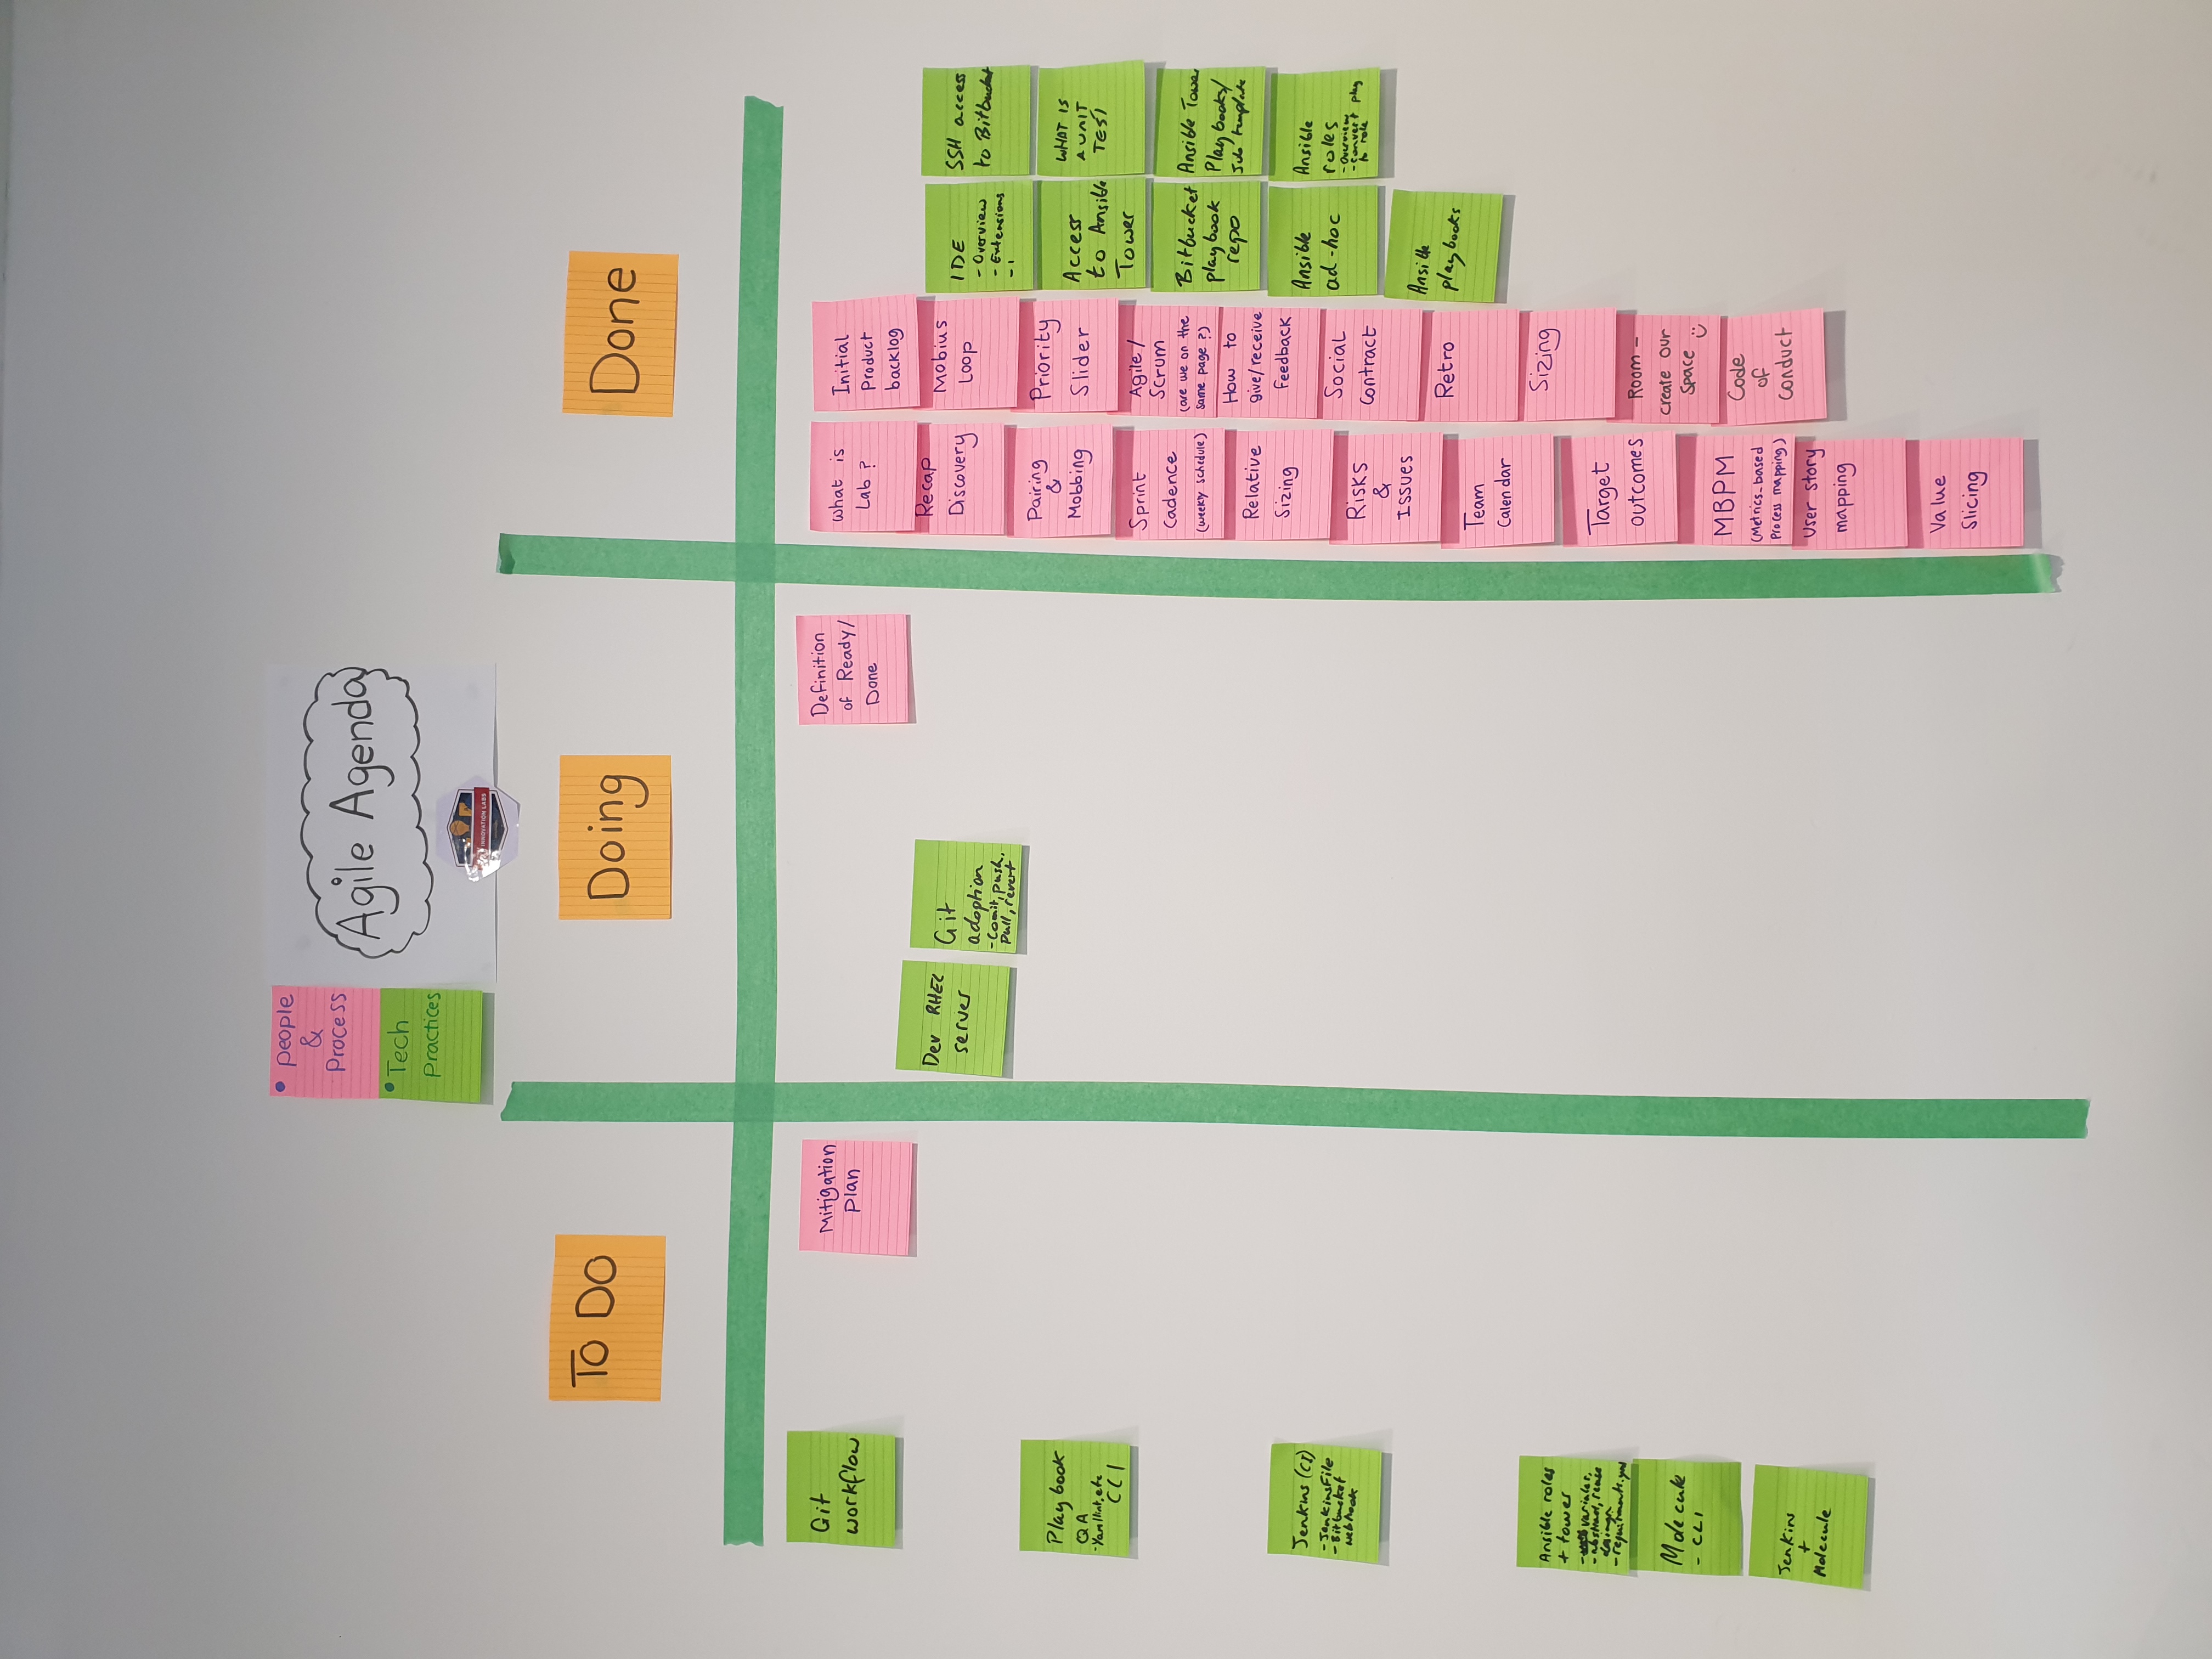 • People
&
Process
• Tech
Practices
Agile Agenda
INNOVATION LABS
To Do
Doing
Done
Git
workflow
Mitigation
Plan
Playbook
QA
- Yamllint, etc
CLI
Jenkins (CI)
- Jenkinsfile
- Bitbucket
webhook
Ansible roles
+ tower
- variales,
- abstract, reuse
design
- requirments.yml
Molecule
- CLI
Jenkins
+
Molecule
Definition
of Ready/
Done
Dev RHEL
server
Git
adoption
- Comit, push,
pull, revert
what is
Lab ?
Recap
Discovery
Pairing
&
Mobbing
Sprint
Cadence
(weekly schedule)
Relative
Sizing
Risks
&
Issues
Team
Calendar
Target
outcomes
MBPM
(Metrics-based
Process mapping)
User story
mapping
Value
Slicing
Initial
Product
backlog
Mobius
Loop
Priority
Slider
Agile /
Scrum
(are we on the
same page ?)
How to
give/receive
feedback
Social
Contract
Retro
Sizing
Room -
create our
Space
Code
of
Conduct
IDE
- Overview
- Extensions
- 1
Access
to Ansible
Tower
Bitbucket
playbook
repo
Ansible
ad-hoc
Ansible
playbooks
SSH access
to Bitbucket
WHAT IS
A UNIT
TEST
Ansible Tower
Playbooks/
Job template
Ansible
roles
- Overview
- Convert play
to role